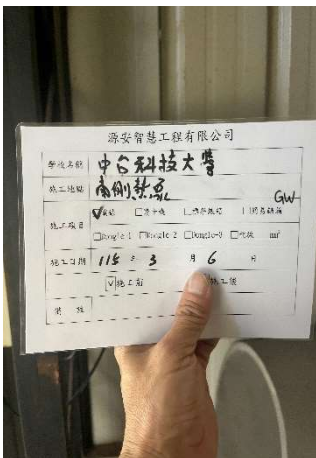 源安智慧工程有限公司
學校名稱 中台科技大學
施工地點 南側熱泵
GW
施工項目
□Dongle-1 □Dongle-2 □Dongle-3 mm²
施工日期 115 年 3 月 6 日
☑施工前 施工後
備註